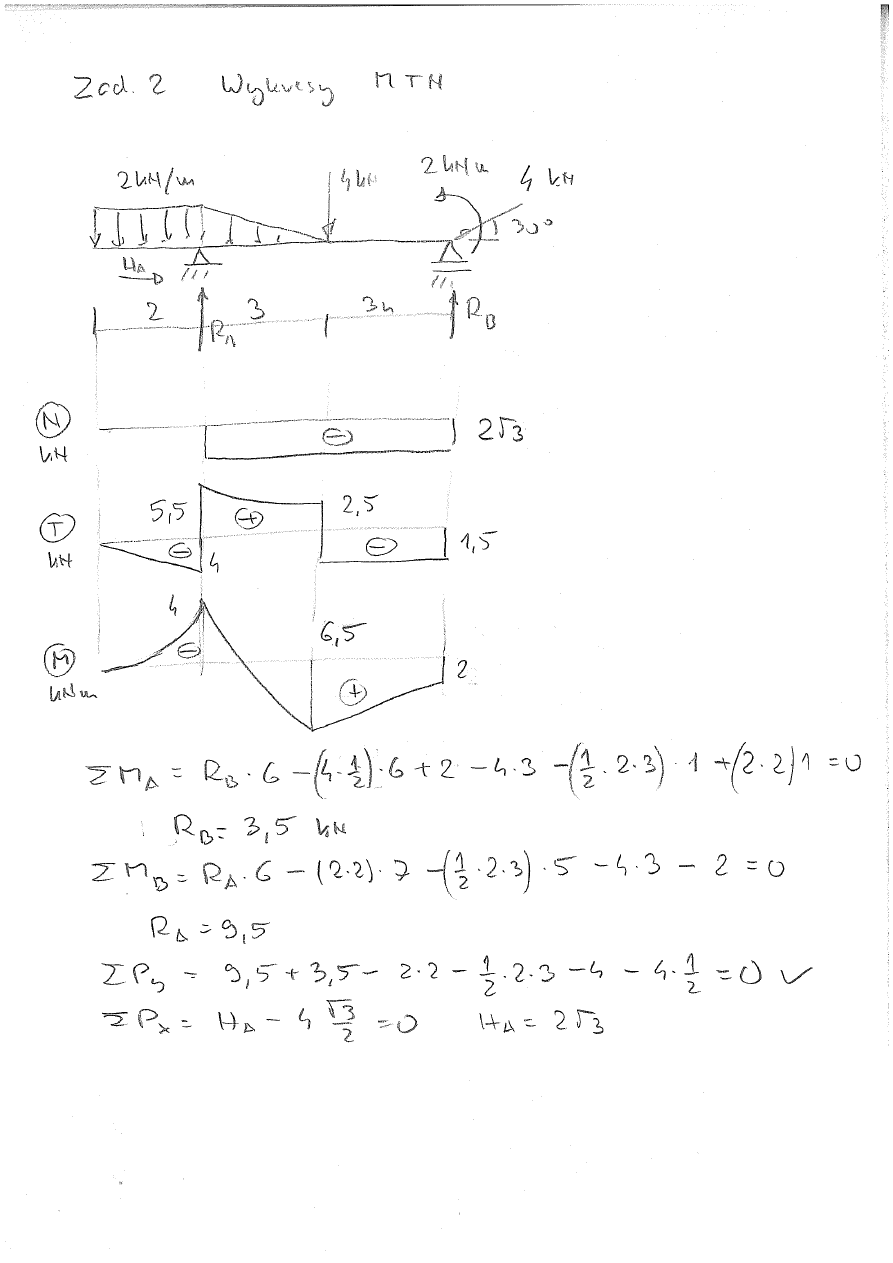 Zad. 2 Wykresy MTN
2kN/m 4kN 2kNm 4 kN
30°
HA
2 3 3m
RA RB
N
kN
⊖ 2√3
T
kN
5,5 ⊕ 2,5
⊖ 4 ⊖ 1,5
M
kNm
4 6,5
⊖ ⊕ 2
ΣMA = RB·6 -(4·1/2)·6 +2 -4·3 -(1/2·2·3)·1 +(2·2)1 =0
RB= 3,5 kN
ΣMB= RA·6 -(2·2)·7 -(1/2·2·3)·5 -4·3 - 2 =0
RA =9,5
ΣPy = 9,5+3,5- 2·2 - 1/2·2·3 -4 - 4·1/2 =0 ✓
ΣPx = HA - 4 √3/2 =0 HA = 2√3